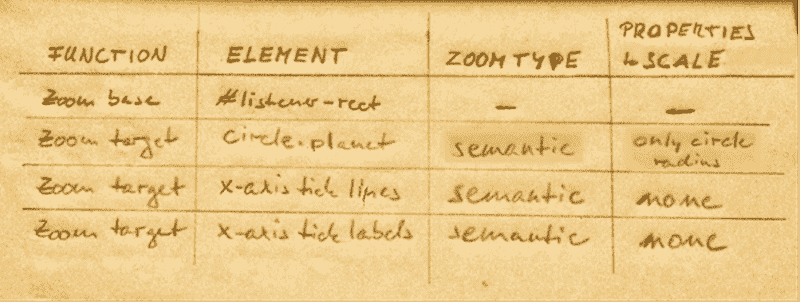 FUNCTION ELEMENT ZOOM TYPE PROPERTIES
↳ SCALE
Zoom base #listener-rect – –
Zoom target circle.planet semantic only circle
radius
Zoom target x-axis tick lines semantic none
Zoom target x-axis tick labels semantic none